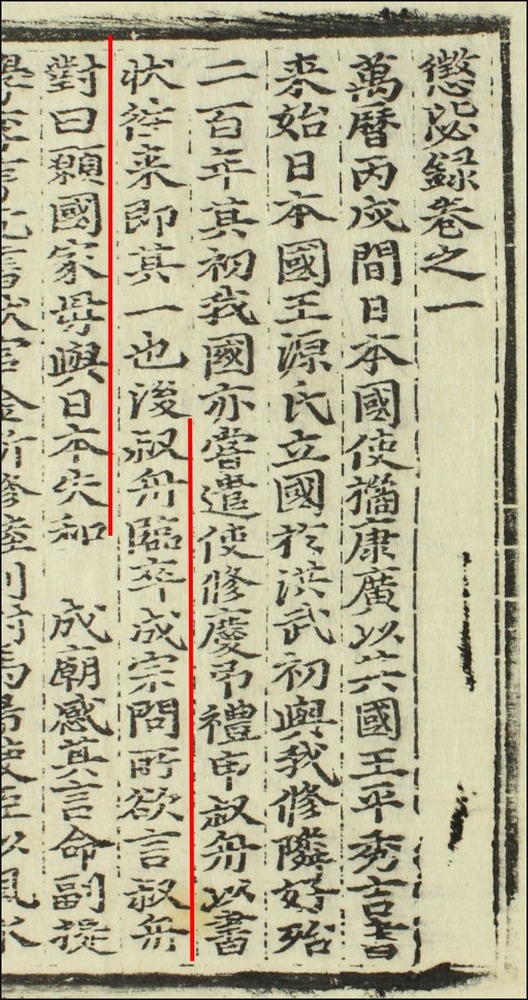 懲毖録卷之一
萬曆丙戌間日本國使橘康廣以其國王平秀吉書
来始日本國王源氏立國於洪武初與我修隣好殆
二百年其初我國亦嘗遣使修慶吊禮申叔舟以書
状徃来即其一也後叔舟臨卒成宗問所欲言叔舟
對曰願國家毋與日本失和 成廟感其言命副提